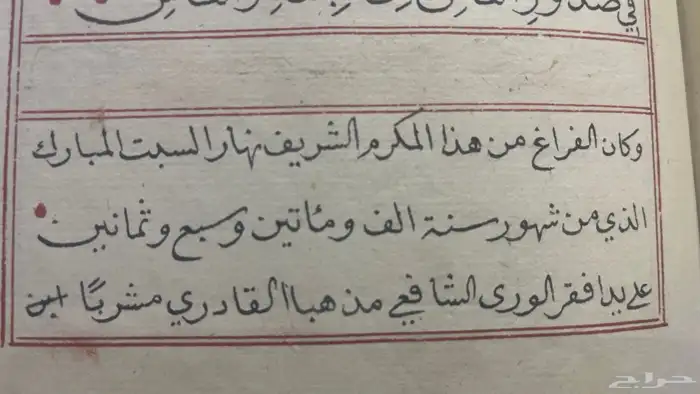 في صدور الناس من الجنة والناس
وكان الفراغ من هذا المكرم الشريف نهار السبت المبارك
الذي من شهور سنة الف ومئاتين وسبع وثمانين
على يد افقر الورى الشافعي مذهبا القادري مشربًا ابن
حراج